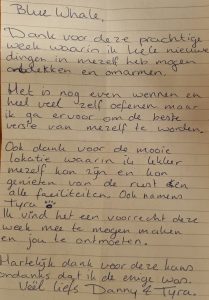 Blue Whale,
Dank voor deze prachtige
week waarin ik hele nieuwe
dingen in mezelf heb mogen
ontdekken en omarmen.
Het is nog even wennen en
heel veel 'zelf oefenen maar
ik ga ervoor om de beste
versie van mezelf te worden.
Ook dank voor de mooie
lokatie waarin ik lekker
mezelf kon zijn en kon
genieten van de rust en
alle faciliteiten. Ook namens
Tyra
Ik vind het een voorrecht deze
week mee te mogen maken
en jou te ontmoeten.
Hartelijk dank voor deze kans
ondanks dat ik de enige was.
Veel liefs Danny & Tyra.